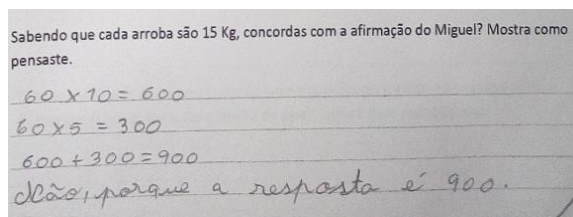 Sabendo que cada arroba são 15 Kg, concordas com a afirmação do Miguel? Mostra como
pensaste.
60 x 10 = 600
60 x 5 = 300
600 + 300 = 900
Não, porque a resposta é 900.